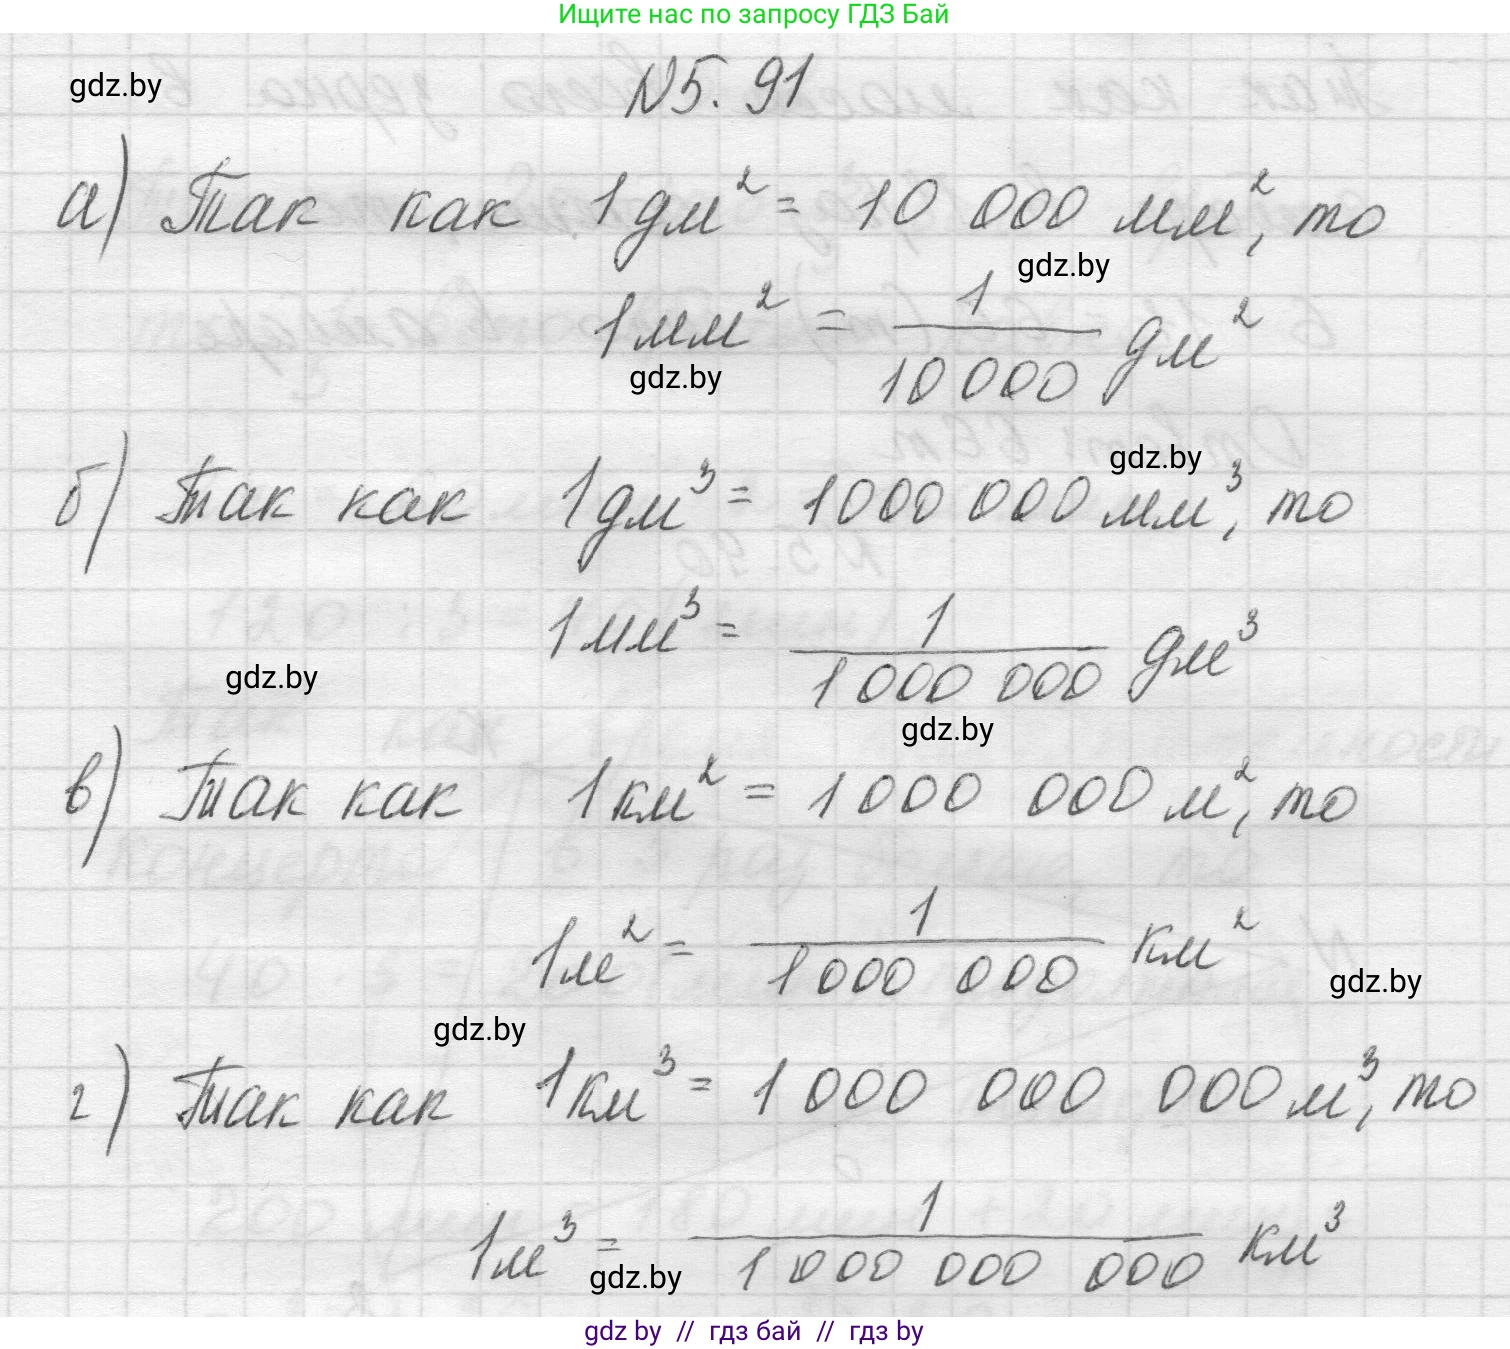 Ищите нас по запросу ГДЗ Бай
gdz.by
N5. 91
а) Так как 1 дм² = 10 000 мм², то
gdz.by
1 мм² = 1/10 000 дм²
gdz.by
gdz.by
б) Так как 1 дм³ = 1 000 000 мм³, то
1 мм³ = 1/1 000 000 дм³
gdz.by
gdz.by
в) Так как 1 км² = 1 000 000 м², то
1 м² = 1/1 000 000 км²
gdz.by
gdz.by
г) Так как 1 км³ = 1 000 000 000 м³, то
1 м³ = 1/1 000 000 000 км³
gdz.by
gdz by // гдз бай // гдз by